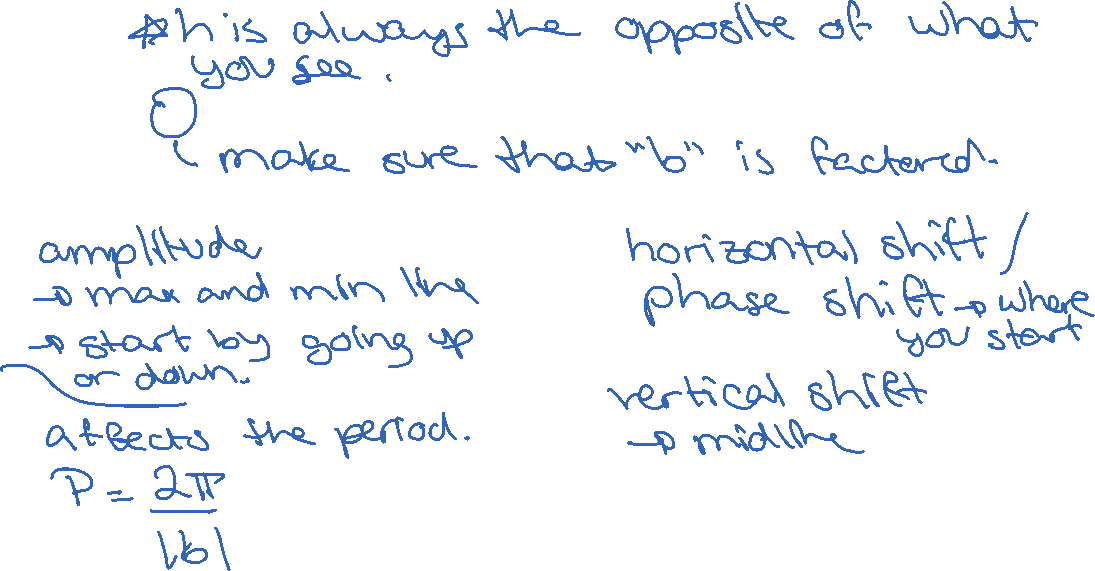 ☆ h is always the opposite of what
you see.
make sure that "b" is factored.
amplitude
→ max and min line
→ start by going up
or down.
affects the period.
P = 2π
|b|
horizontal shift /
phase shift → where
you start
vertical shift
→ midline